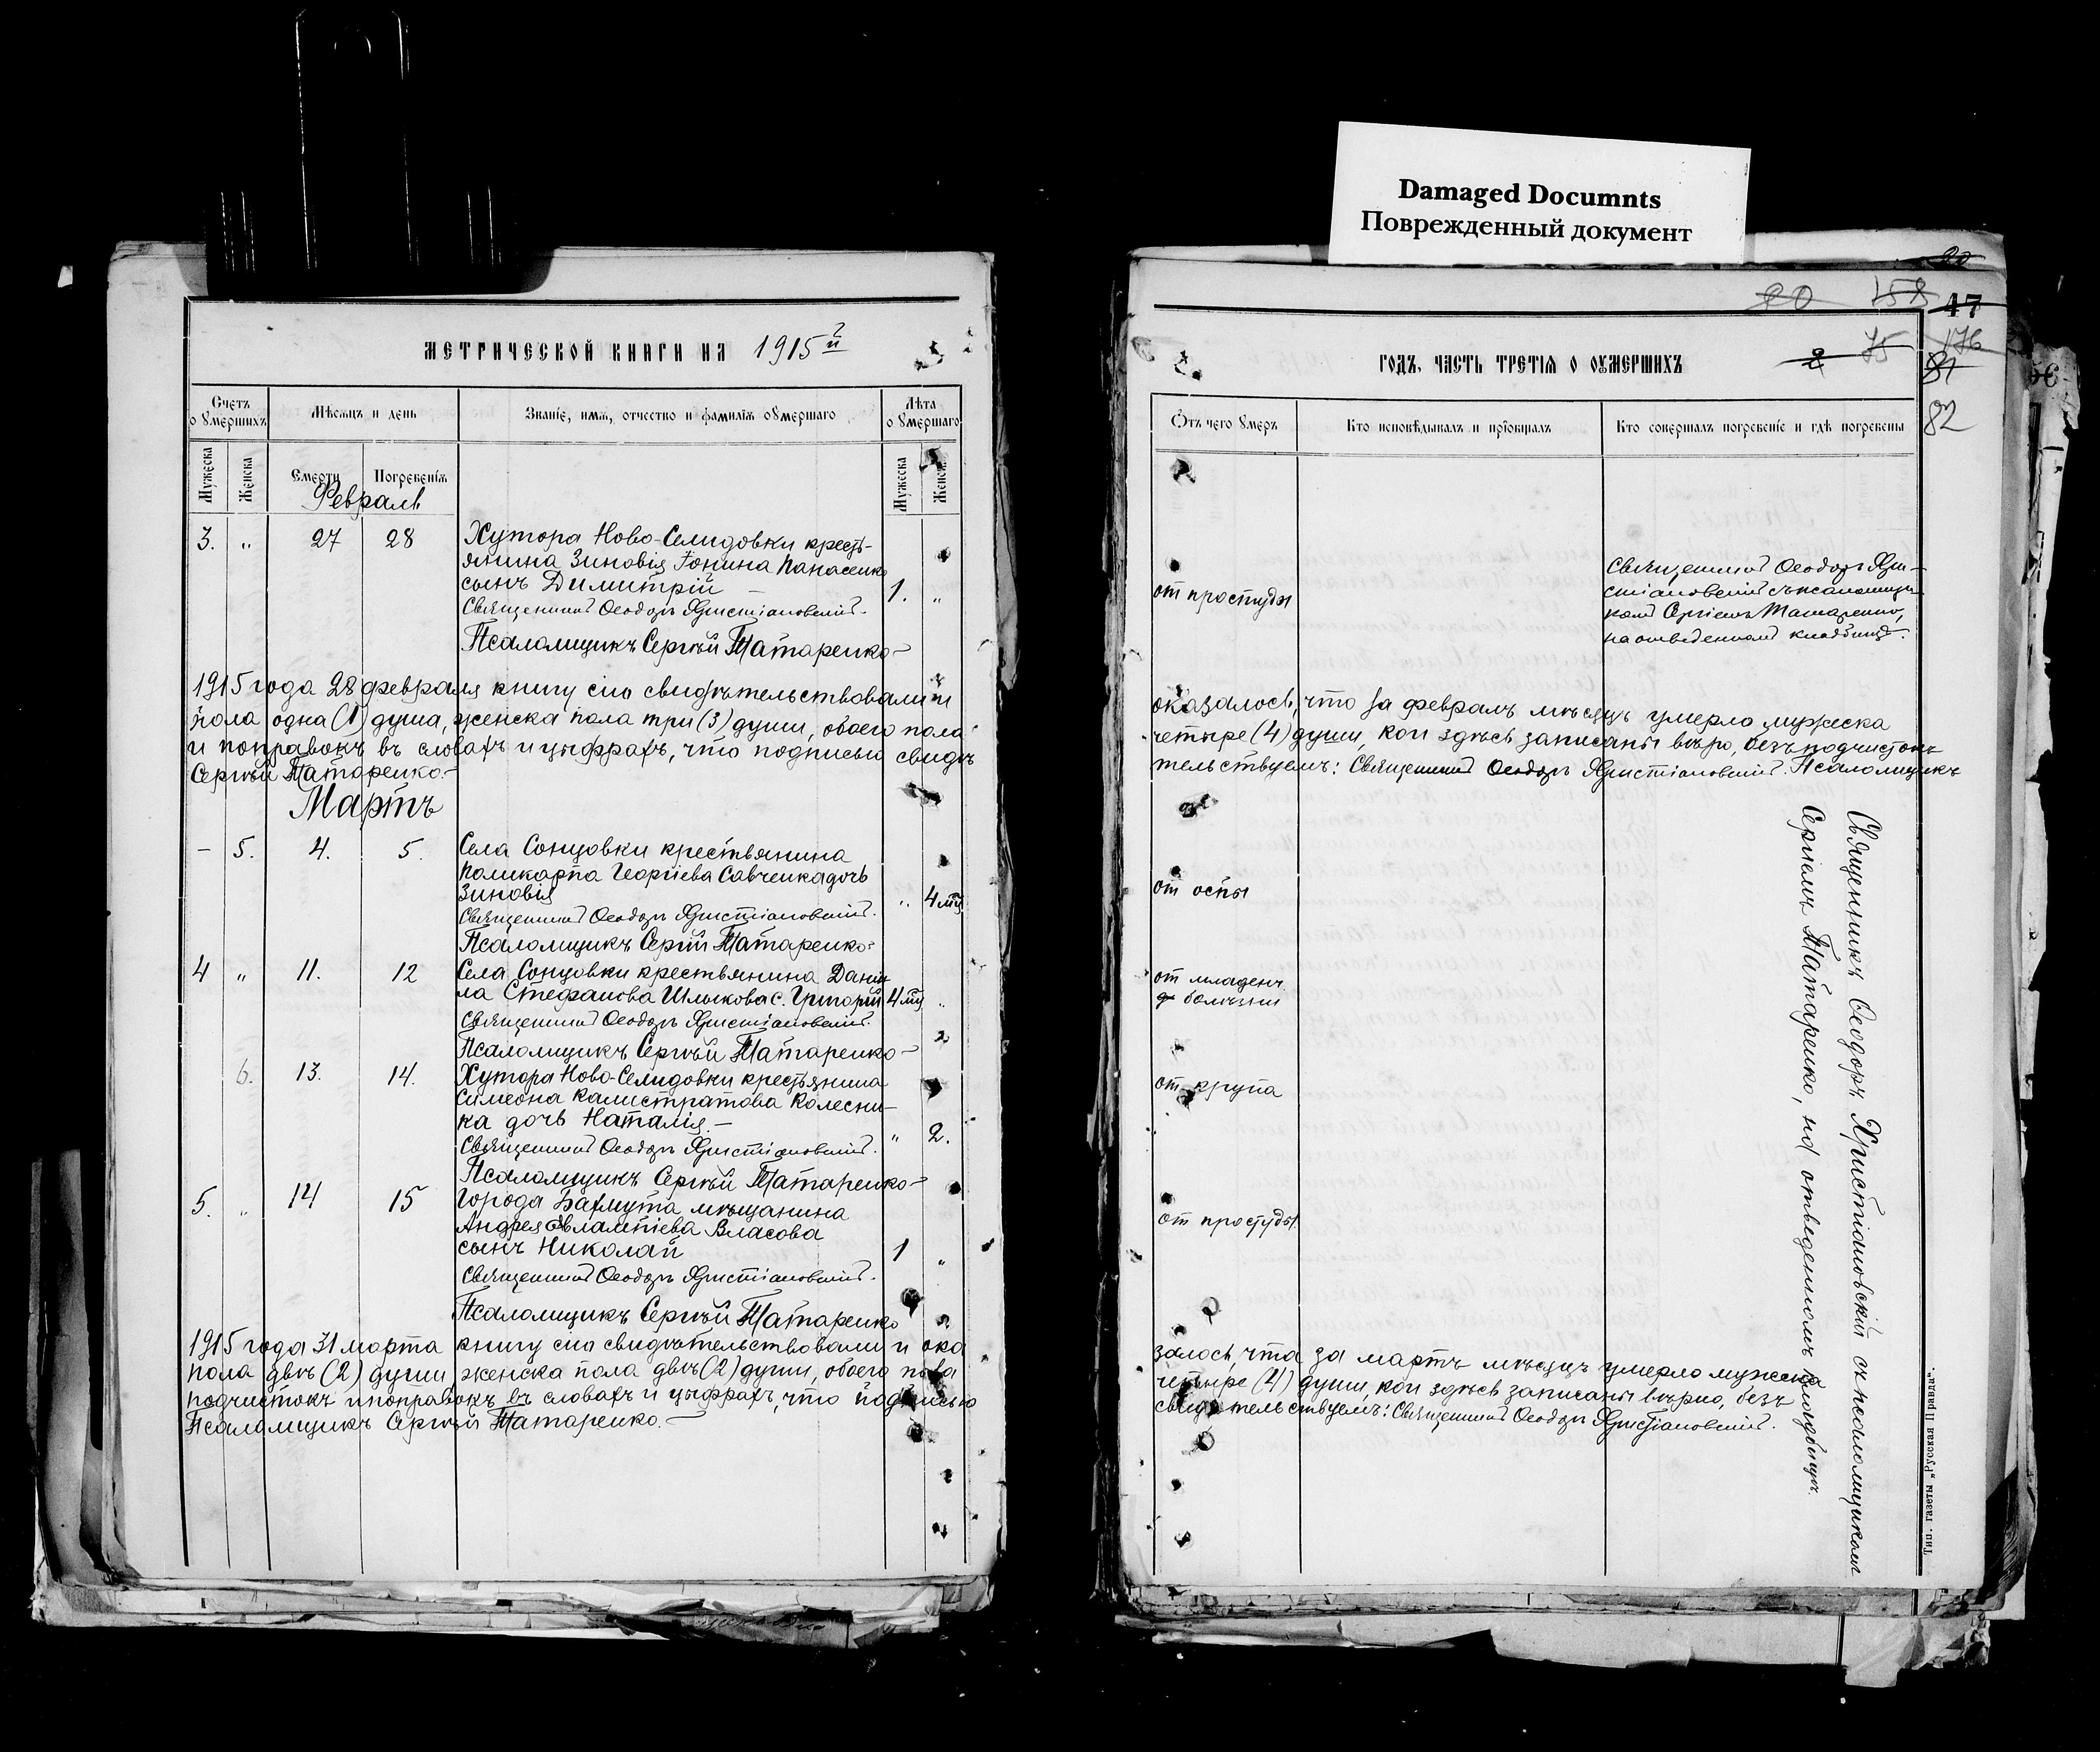 Damaged Documnts
Поврежденный документ
МЕТРИЧЕСКОЙ КНИГИ НА 1915й
Счетъ оумершихъ
Мѣсяцъ и день
Званіе, имя, отчество и фамилія оумершаго
Лѣта оумершаго
Мужеска
Женска
Смерти
Погребенія
Мужеска
Женск.
Февраль
3. „ 27 28 Хутора Ново-Селидовки кресть-
янина Зиновія Іонина Панасенко
сынъ Димитрій — 1. „
Священникъ Ѳеодоръ Христіановскій.
Псаломщикъ Сергѣй Татаренко—
1915 года 28 февраля книгу сію свидѣтельствовали и
пола одна (1) душа, женска пола три (3) души, обоего пола
и поправокъ въ словахъ и цыфрахъ, что подписью свидѣ
Сергѣй Татаренко.—
Мартъ
— 5. 4. 5. Села Сонцовки крестьянина
Поликарпа Георгіева Савченка дочь
Зиновія „ 4 мц
Священникъ Ѳеодоръ Христіановскій.
Псаломщикъ Сергѣй Татаренко.
4 „ 11. 12 Села Сонцовки крестьянина Дани
ла Стефанова Шлыкова с. Григорій 4 мц „
Священникъ Ѳеодоръ Христіановскій.
Псаломщикъ Сергѣй Татаренко—
6. 13. 14. Хутора Ново-Селидовки крестьянина
Симеона Калистратова Колесни-
ка дочь Наталія.— „ 2.
Священникъ Ѳеодоръ Христіановскій.
Псаломщикъ Сергѣй Татаренко—
5. „ 14 15 Города Бахмута мѣщанина
Андрея Евлампіева Власова
сынъ Николай 1 „
Священникъ Ѳеодоръ Христіановскій.
Псаломщикъ Сергѣй Татаренко
1915 года 31 марта книгу сію свидѣтельствовали и ока
пола двѣ (2) души женска пола двѣ (2) души, обоего пола
подчистокъ и поправокъ въ словахъ и цыфрахъ, что подписью
Псаломщикъ Сергѣй Татаренко.—
20
20 158 47
ГОДЪ, ЧАСТЬ ТРЕТІЯ О ОУМЕРШИХЪ
2 75 176
81
82
Отъ чего умеръ
Кто исповѣдывалъ и пріобщалъ
Кто совершалъ погребеніе и гдѣ погребены
от простуды
Священникъ Ѳеодоръ Хри-
стіановскій съ псаломщи-
комъ Сергіемъ Татаренко,
на отведенномъ кладбищѣ.
оказалось, что за февраль мѣсяцъ умерло мужеска
четыре (4) души, кои здѣсь записаны вѣрно, безъ подчистокъ
тельствуемъ: Священникъ Ѳеодоръ Христіановскій. Псаломщикъ
от оспы
от младенч.
болѣзни
от крупа
от простуды
Священникъ Ѳеодоръ Христіановскій съ псаломщикомъ
Сергіемъ Татаренко, на отведенномъ кладбищѣ.
залось, что за мартъ мѣсяцъ умерло мужеска
четыре (4) души, кои здѣсь записаны вѣрно, безъ
свидѣтельствуемъ: Священникъ Ѳеодоръ Христіановскій.
Тип. газеты „Русская Правда“.